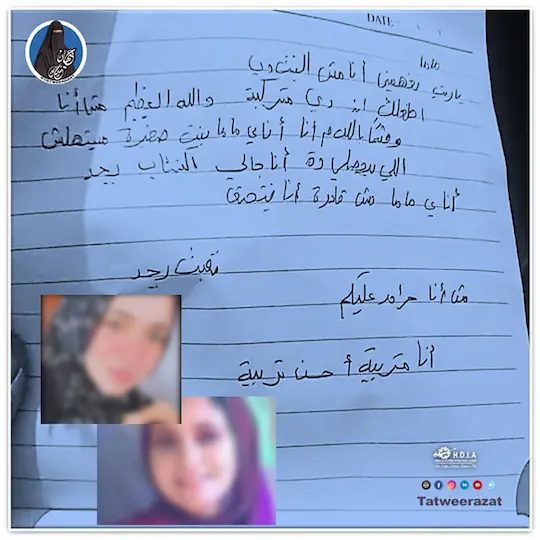 DATE:
ماما
ياريت تفهمينى أنا مش البنت دي
اطفلك ان دي متركبة والله العظيم مش أنا
وقسما بالله دم أنا أناي ماما بنت صغيرة مستهلش
اللي بيحصلي دة أنا جالي اكتئاب بجد
أناي ماما مش قادرة أنا بتخنق
تعبت بجد
مش أنا حرام عليكم
أنا متربية أحسن تربية
H.D.I.A
Tatweerazat